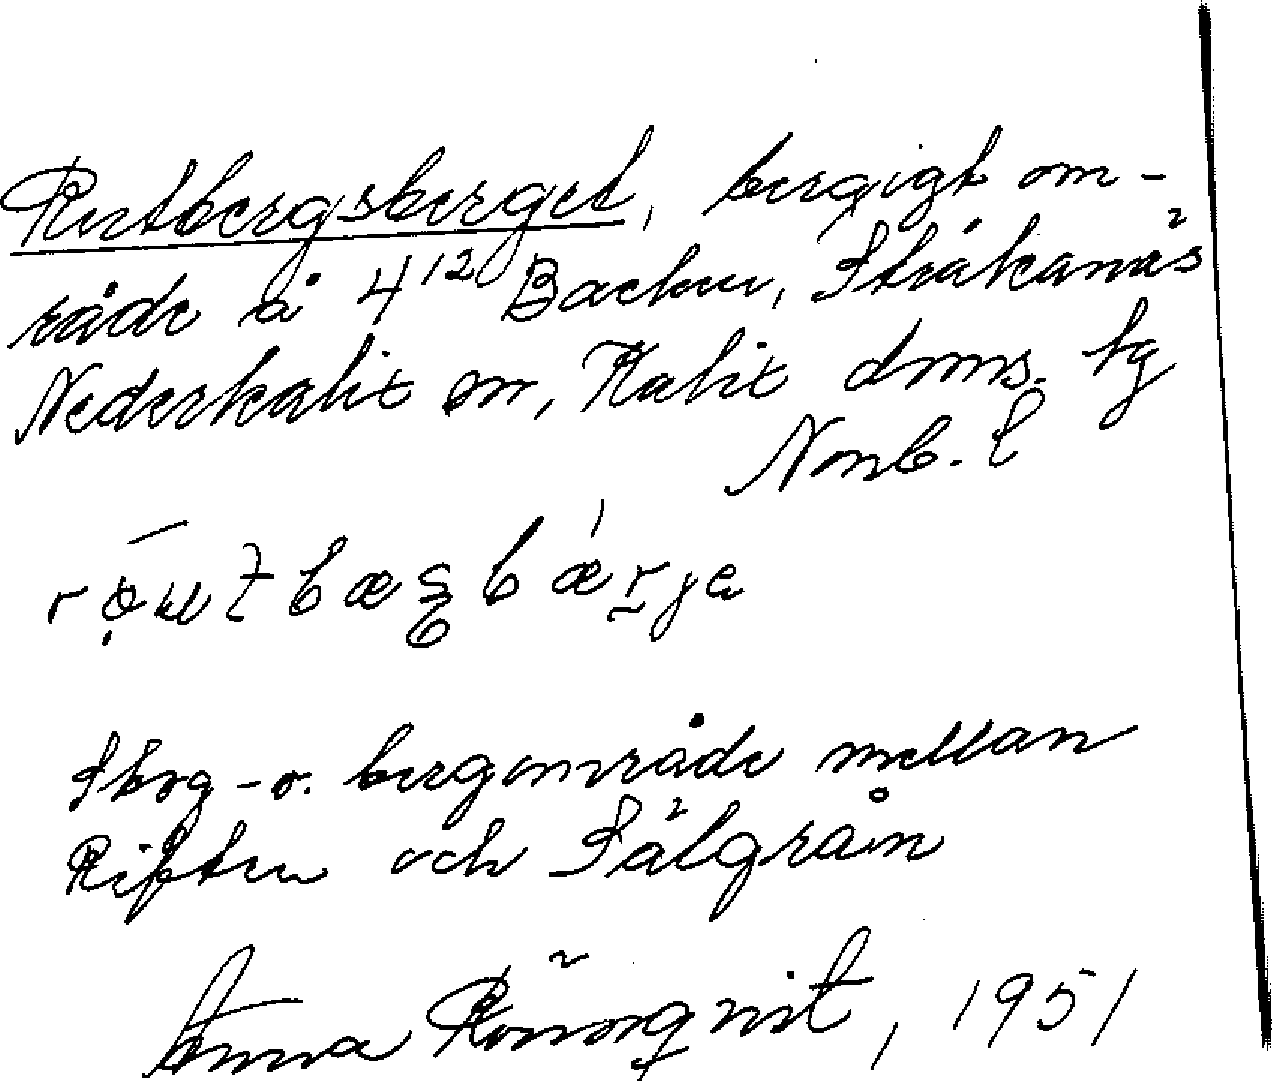 Rutbergsberget, bergigt om-
råde å 4¹² Backen, Stråkanäs
Nederkalix sn, Kalix doms. tg
Norrb. l
Skog- o. bergområde mellan
Riften och Sälgrån
Anna Rönnqvist, 1951